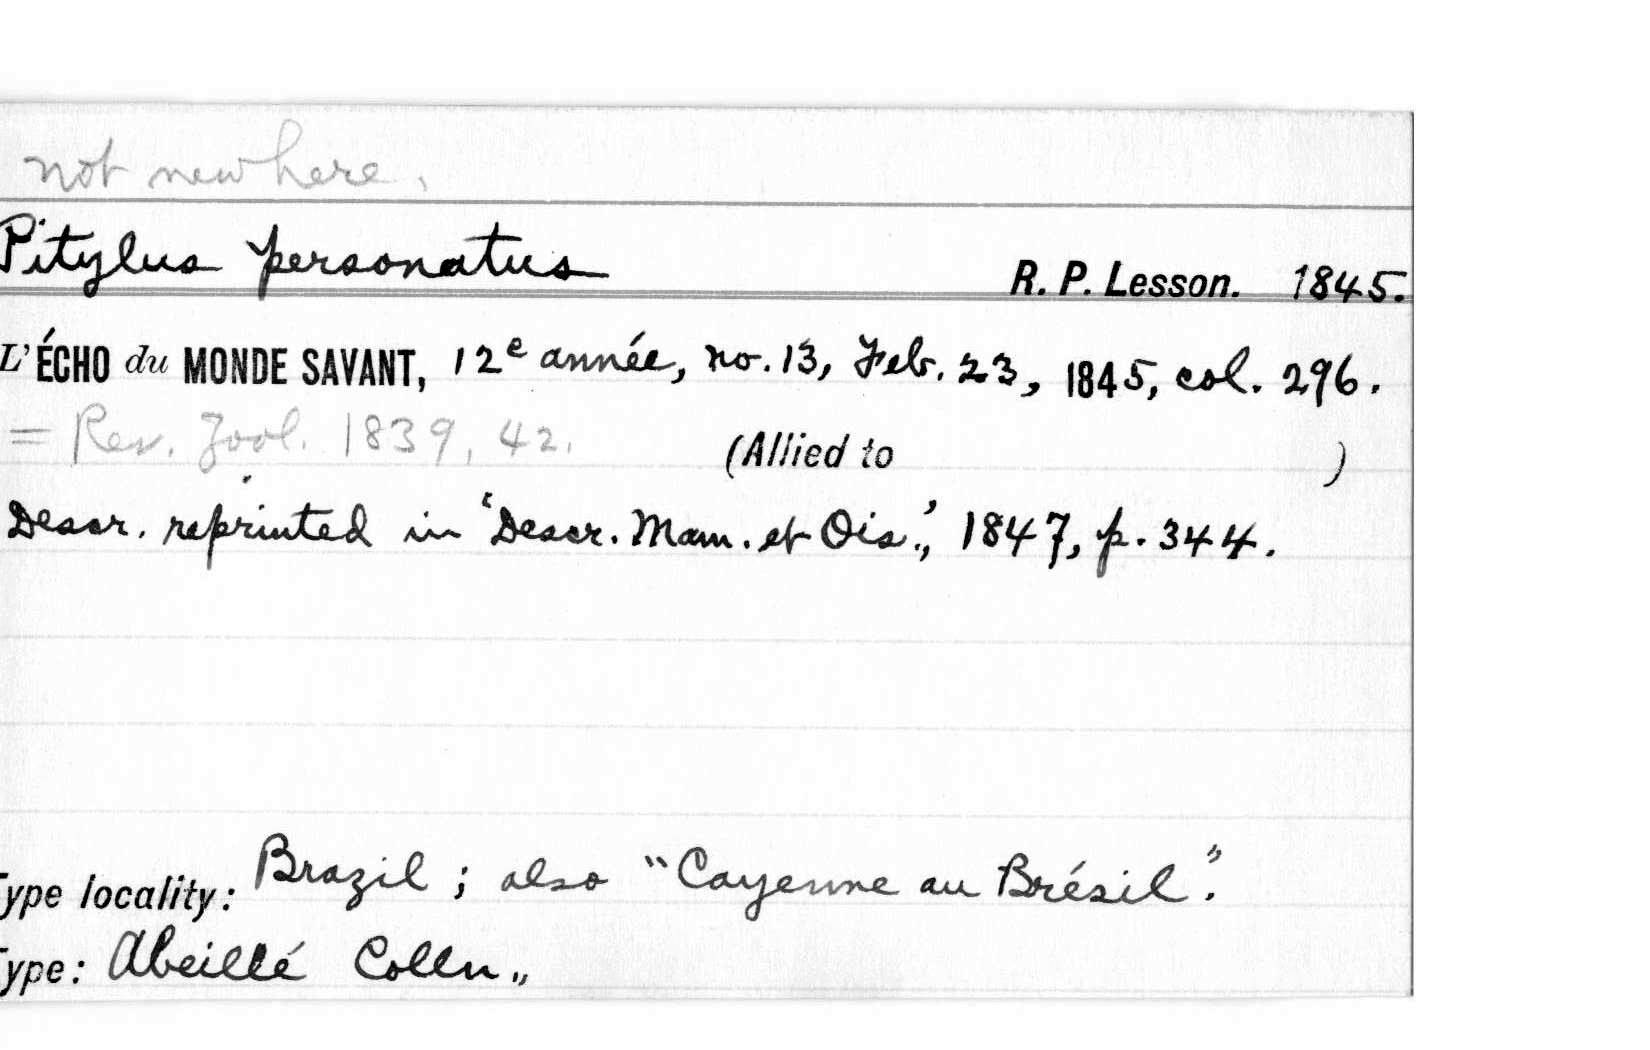 not new here.
Pitylus personatus R. P. Lesson. 1845.
L'ÉCHO du MONDE SAVANT, 12e année, no. 13, Feb. 23, 1845, col. 296.
= Rev. Zool. 1839, 42. (Allied to )
Descr. reprinted in 'Descr. Mam. et Ois.', 1847, p. 344.
Type locality: Brazil; also "Cayenne au Brésil".
Type: Abeillé Colln.